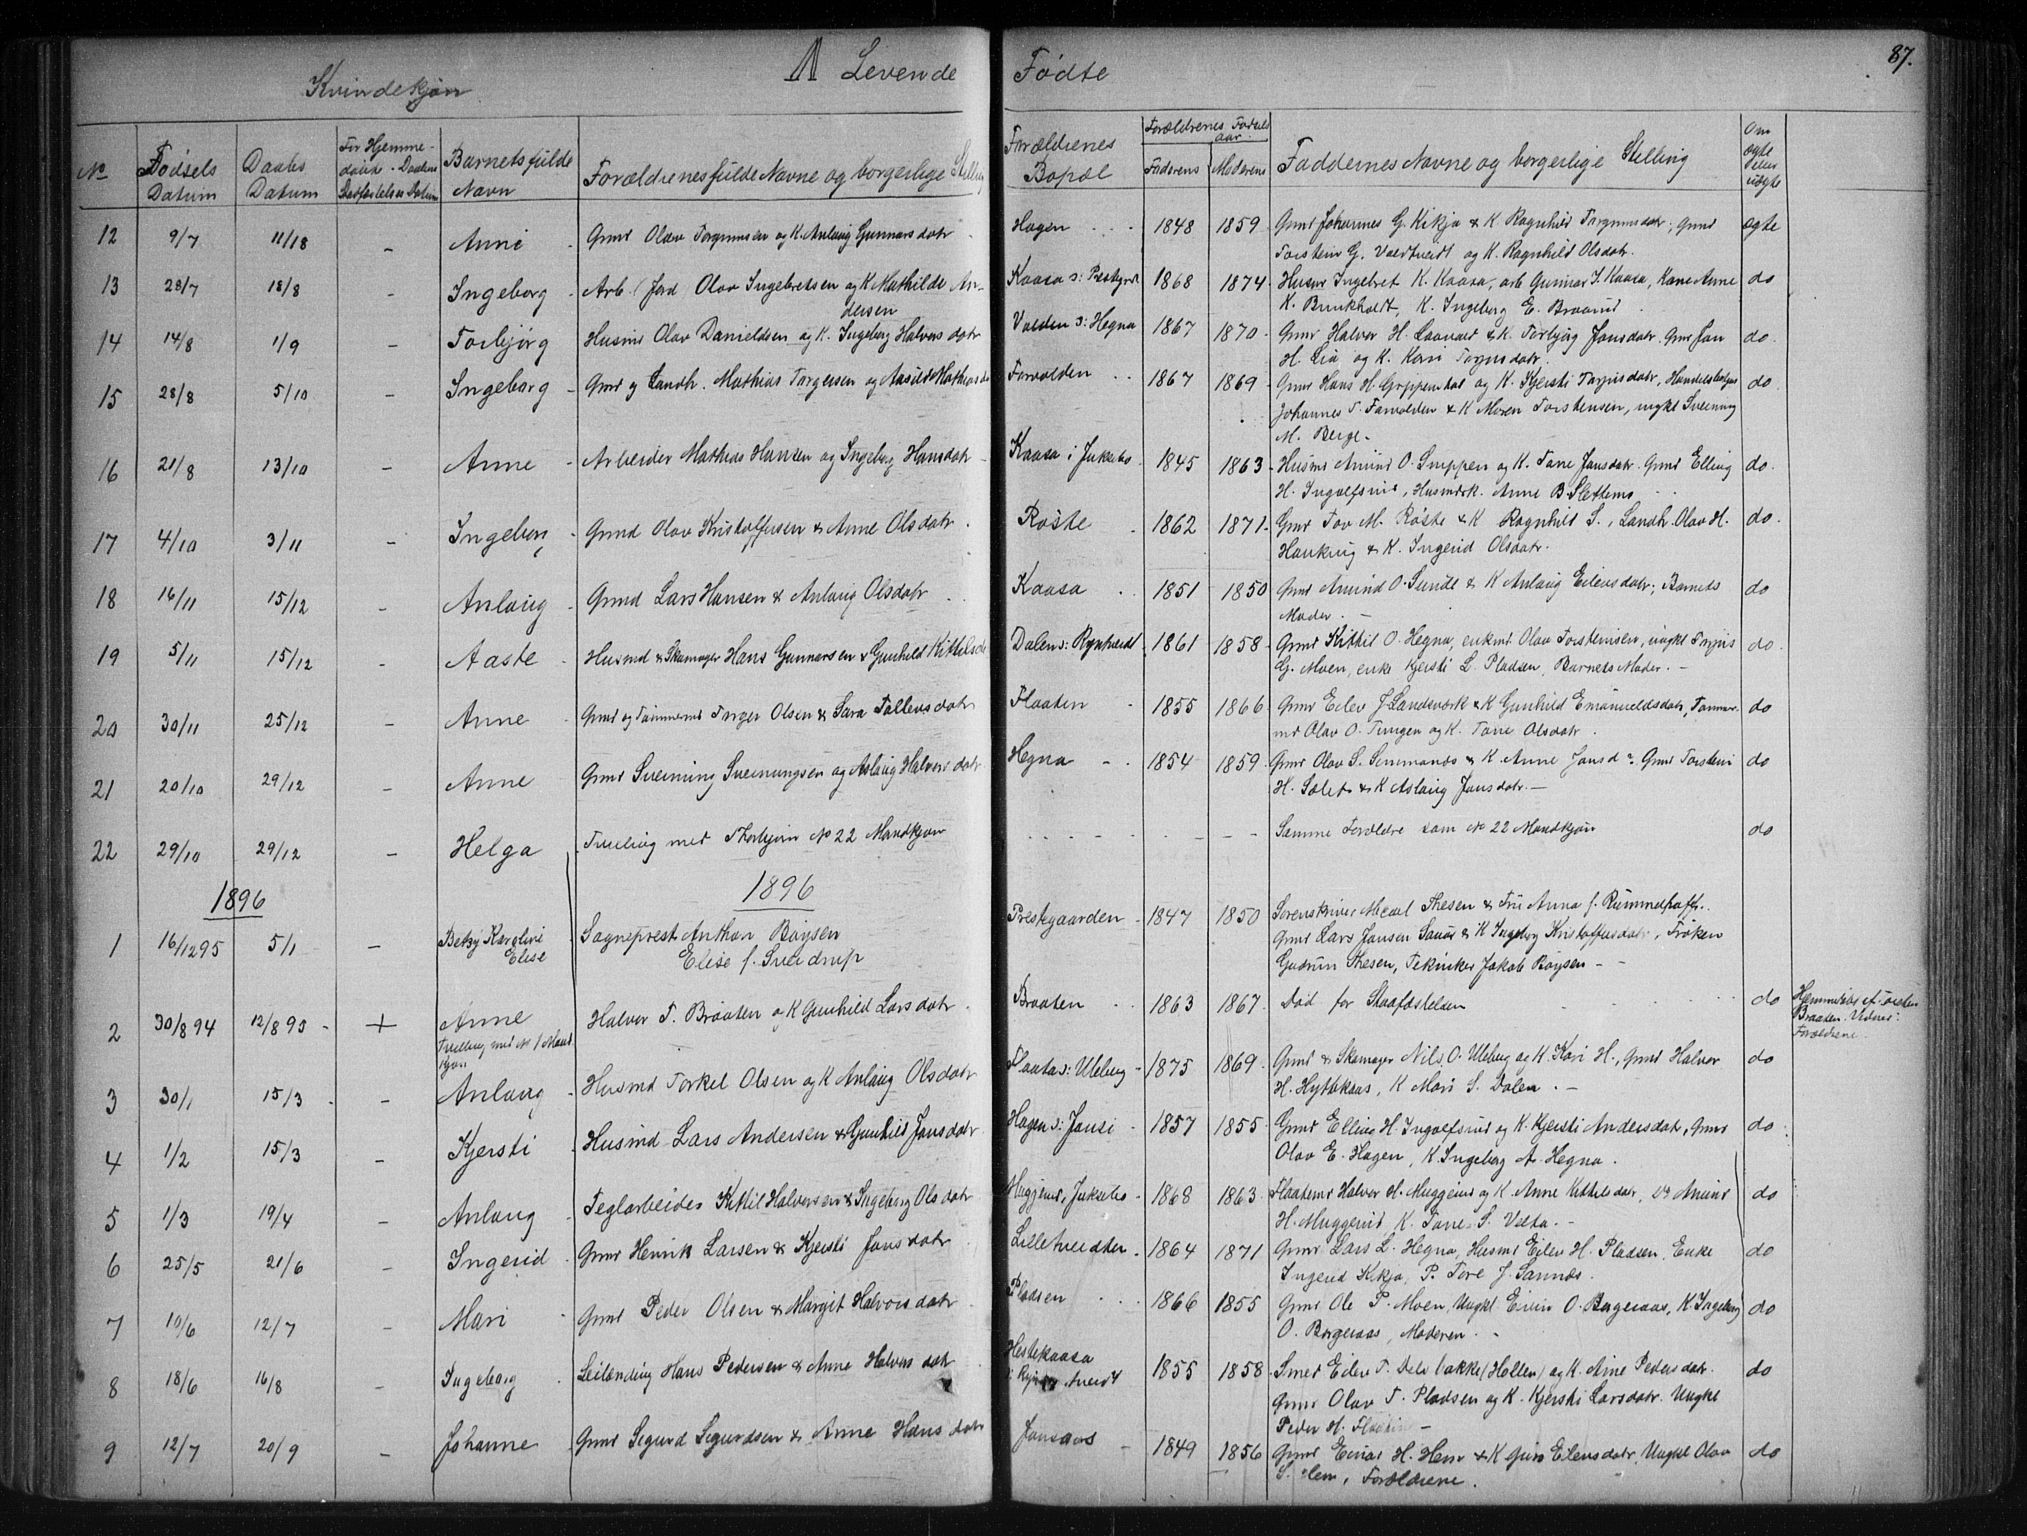 Kvindekjøn
Levende Fødte
87.
No
Fødsels Datum
Daabs Datum
Barnets fulde Navn
Forældrenes fulde Navne og borgerlige Stilling
Forældrenes Bopæl
Forældrenes Fødsels aar
Faderens
Moderens
Faddernes Navne og borgerlige Stilling
Om ægte eller uægte
12 9/7 11/18 - Anne Gmd Olav Torgrimsen og K. Anlaug Gunnarsdatr Hagen 1848 1859 Gmd Johannes G. Kikja & K Ragnhild Torgrimsdatr, Gmd ægte
Torstein G. Valtveidt og K. Ragnhild Olsdatr.
13 28/7 18/8 - Ingeborg Arb. Olav Ingebretsen og K Mathilde An- Kaasa 1868 1874 Husmd Ingebret K. Kaasa, arb Gunnar I. Kaasa, Kone Anne do
dersen K. Ingeborg E. Braarud
14 14/8 1/9 - Torbjørg Husmd Olav Danieldsen og K. Ingeborg Halvorsdatr Valden s: Hegna 1867 1870 Gmd Halvor H. & K. Torbjørg Jonsdatr. Gmd Jon do
H. Lia og K. Kari
15 28/8 5/10 - Ingeborg Gmd og Landh. Mathias Torgersen og Forvolden 1867 1869 Gmd Hans H. og K. Kjersti do
Johannes T. & K Maren Torstensen, ungkl Sveinung
M. Berge.
16 21/8 13/10 - Anne Arbeider Mathias Hansen og Ingeborg Hansdatr Kaasa i 1845 1863 Husmd Amund O. og K. Tone Jonsdatr. Gmd Elling do
H. Ingolfsrud, Anne B
17 4/10 3/11 - Ingeborg Gmd Olav Kristoffersen & Anne Olsdatr Røste 1862 1871 Gmd Tov M. Røste & K Ragnhild S., Landh. Olav H. do
& K. Ingerid Olsdatr.
18 16/11 15/12 - Anlaug Gmd Lars Hansen & Anlaug Olsdatr Kaasa 1851 1850 Gmd Amund O. Sunde & K Anlaug Eilevsdatr; Barnets do
Moder.
19 5/11 15/12 - Aaste Husmd & Skomager Hans Gunnarsen & Gunhild 1861 1858 Gmd Kittil O. Hegna, enkmd Olav Torstensen, ungkl do
G. Moen, enke Kjersti L. Pladsen, Barnets Moder.
20 30/11 25/12 - Anne Gmd og Torger Olsen & Sara Tollevsdatr Flaaten 1855 1866 Gmd Eilev J Landsverk & K Gunhild Emanueldsdatr, do
Olav O. og K. Tone Olsdatr.
21 20/10 29/12 - Anne Gmd Sveinung Sveinungsen og Aslaug Halvorsdatr Hegna 1854 1859 Gmd Olav S. & K. Anne Gmd Torstein do
& K Aslaug Jonsdatr.
22 29/10 29/12 - Helga Tvilling med No 22 Mandkjøn Samme Forældre som No 22 Mandkjøn do
1896 1896
1 16/12 95 5/1 - Betzy Karoline Sogneprest Anthon Bøysen Prestegaarden 1847 1850 Sorenskriver Thesen & Fru Anna f.
Elise Elise f. Sverdrup Gmd Lars Jonsen & K Ingeborg Kristoffersdatr, Frøken
Gudrun Thesen, Tekniker Jakob Bøysen
2 30/8 94 12/8 95 + Anne Halvor T. Braaten og K Gunhild Larsdatr Braaten 1863 1867 Død før Stadfæstelsen do Hjemmedøbt
Tvilling med No 1 Mand Braaten.
kjøn Forældrene
3 30/1 15/3 - Anlaug Husmd Torkel Olsen og K Anlaug Olsdatr 1875 1869 Gmd & Skomager Nils O. Uleberg og K Kari H., Gmd Halvor do
H. Hyttekaas, K Mari S. Dalen.
4 1/2 15/3 - Kjersti Husmd Lars Andersen & Gunhild Jonsdatr Hagen 1857 1855 Gmd Elling H. Ingolfsrud og K. Kjersti Andersdatr, Gmd do
Olav E. Hagen, K Ingeborg A. Hegna.
5 1/3 19/4 - Anlaug Teglarbeider Kittil Halvorsen & Ingeborg Olsdatr 1868 1863 Halvor H. Muggerud og K. Anne Kittelsdatr, Amund do
H. Muggerud, K. Tone S.
6 25/5 21/6 - Ingerid Gmd Henrik Larsen & Kjersti Jonsdatr Lilletveidten 1864 1871 Gmd Lars L. Hegna, Husmd Eilev H. Pladsen, Enke do
Ingerid Kikja, P. Tore J. Sannæs.
7 10/6 12/7 - Mari Gmd Peder Olsen & Margit Halvorsdatr Pladsen 1866 1855 Gmd Ole P. Moen, Ungkl. O. Borgeraas, K Ingeborg do
O. Borgeraas, Moderen.
8 18/6 16/8 - Ingeborg Leilending Hans Pedersen & Anne Halvorsdatr Hestekaasa 1855 1858 Smed Eilev T. (Hollen) og K. Anne Pedersdatr. do
Gmd Olav T. Pladsen og K. Kjersti Larsdatr. Ungkl
Peder H.
9 12/7 20/9 - Johanne Gmd Sigurd Sigurdsen & Anne Hansdatr Jonsaas 1849 1856 Gmd Einar H. Hem & K Eilevsdatr, Ungkl Olav do
S. Hem, Forældrene.